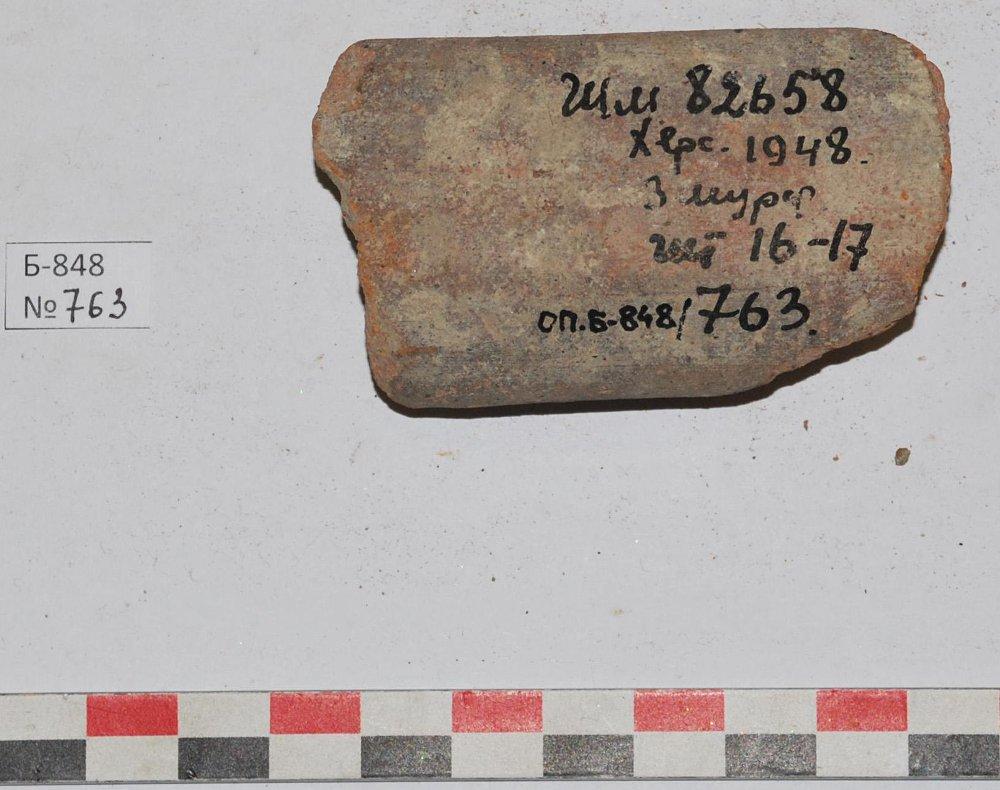 Б-848
№763
ГИМ 82658
Херс. 1948.
шт 16-17
оп.Б-848/763.